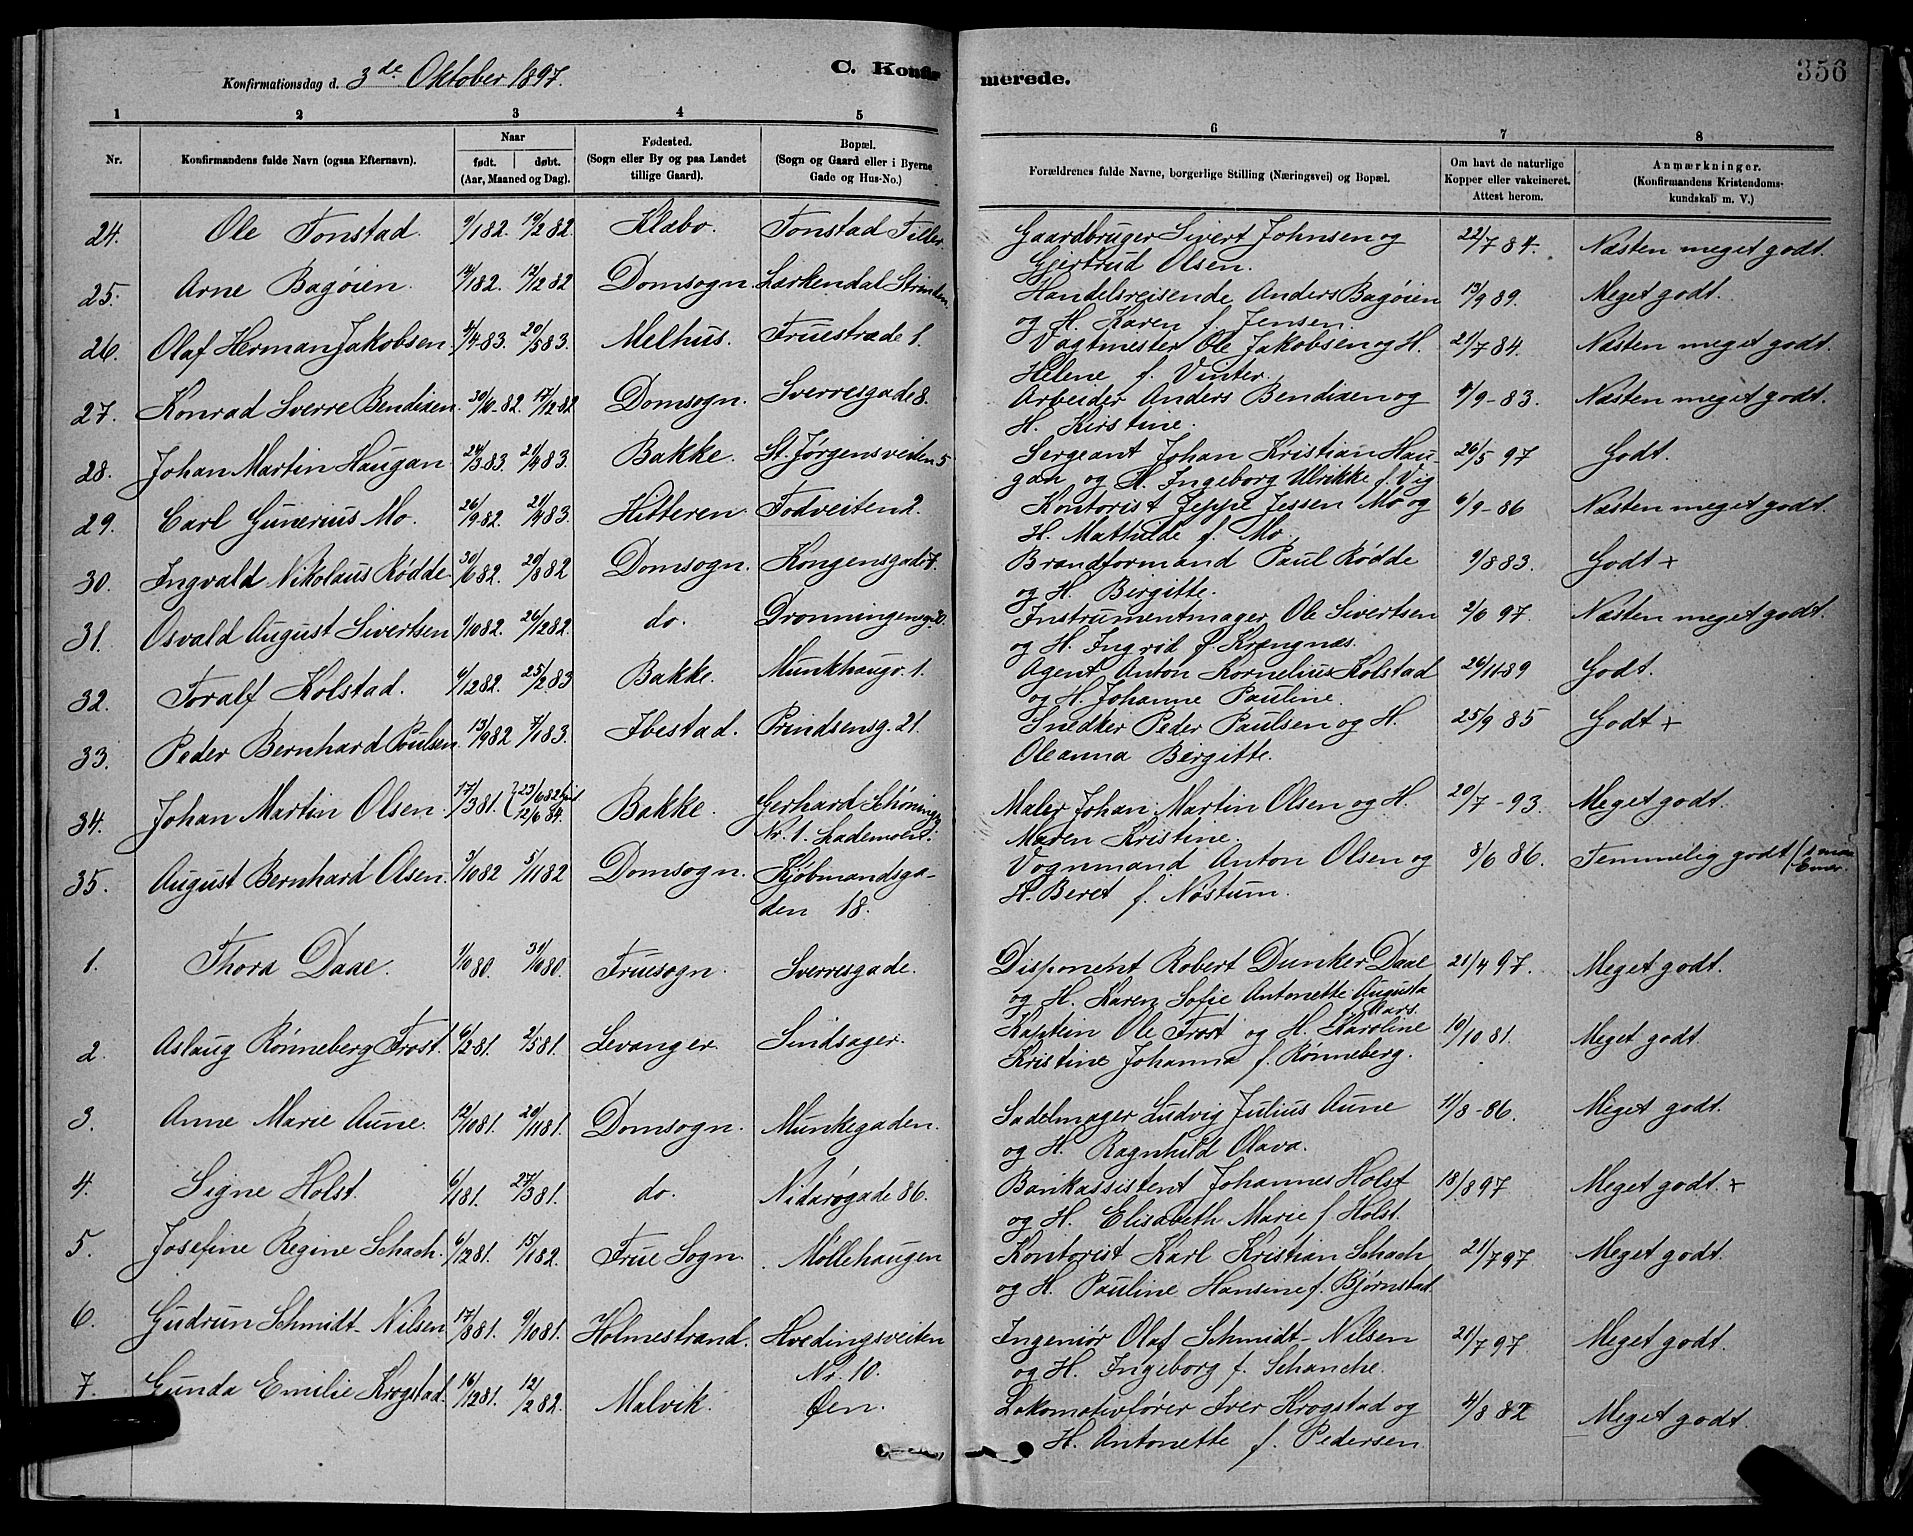 Konfirmationsdag d. 3de Oktober 1897.
C. Konfirmerede.
356
1 2 3 4 5 6 7 8
Nr.
Konfirmandens fulde Navn (ogsaa Efternavn).
Naar
født. døbt.
(Aar, Maaned og Dag).
Fødested.
(Sogn eller By og paa Landet
tillige Gaard).
Bopæl.
(Sogn og Gaard eller i Byerne
Gade og Hus-No.)
Forældrenes fulde Navne, borgerlige Stilling (Næringsvei) og Bopæl.
Om havt de naturlige
Kopper eller vakcineret.
Attest herom.
Anmærkninger.
(Konfirmandens Kristendoms-
kundskab m. V.)
24. Ole Tonstad. 9/1 82. 19/2 82. Klæbo. Tonstad Tiller. Gaardbruger Sivert Johnsen og 22/7 84. Næsten meget godt.
Gjertrud Olsen.
25. Arne Bagøien. 1 82. 12/2 82 Domsogn. Lærkendal Strinden. Handelsreisende Anders Bagøien 13/9 89. Meget godt.
og H. Karen f. Jensen.
26. Olaf Herman Jakobsen 4 83. 20/5 83. Melhus. Fruestræde 1. Vagtmester Ole Jakobsen og H. 21/7 84. Næsten meget godt.
Helene f. Vinter.
27. Konrad Sverre Bendixen. 30/10 82. 17/12 82 Domsogn. Sverresgade 8. Arbeider Anders Bendixen og 9-83. Næsten meget godt.
H. Kirstine.
28. Johan Martin Haugan 24/3 83. 21/4 83. Bakke. St. Jørgensveiten 5 Sergeant Johan Kristian Hau- 26/5 97 Godt.
gan og H. Ingeborg Ulrikke f. Vig
29. Carl Gunerius Mo. 26/9 82. 21/4 83. Hitteren Fodveiten 2. Kontorist Jeppe Jessen Mo og 6/9-86 Næsten meget godt.
H. Mathilde f. Mo
30. Ingvald Nikolaus Rødde 30/6 82. 20/8 82 Domsogn. Kongensgade 7. Brandformand Paul Rødde 9/8 83. Godt +
og H. Birgitte.
31. Osvald August Sivertsen 1/10 82. 26/12 82. do. Dronningensg. Instrumentmager Ole Sivertsen 2/6 97. Næsten meget godt.
og H. Ingrid f. Krangnæs.
32. Toralf Kolstad. 12 82. 25/2 83 Bakke. Munkhaugv. 1. Agent Anton Kornelius Kolstad 26/11-89 Godt.
og H. Johanne Pauline.
33. Peder Bernhard Poulsen 13/9 82 7/1 83. Ibestad. Prindsensg. 21. Snedker Peder Paulsen og H. 25/9 85 Godt +
Oleanna Birgitte.
34. Johan Martin Olsen. 17/3 81. 23/6 82 12/6 84. Bakke. Gerhard Schønings Maler Johan Martin Olsen og H. 20/7-93. Meget godt.
Nr. 1. Lademoen. Maren Kristine.
35. August Bernhard Olsen. 3/10 82 5/11 82 Domsogn. Kjøbmandsga- Vognmand Anton Olsen og 8/6 86. Temmelig godt
den 18. H. Beret f. Nøstum.
1. Thora Daae. 1/10 80. 31/10 80. Fruesogn. Sverresgade. Disponent Robert Dunker Daae 21/4 97. Meget godt.
og H. Karen Sofie Antonette Augusta
Aars.
2. Aslaug Rønneberg Frost. 6/2 81. 2/5 81. Levanger. Sindsager. Kaptein Ole Frost og H. Karoline 19/10 81. Meget godt.
Kristine Johanna f. Rønneberg.
3. Anne Marie Aune. 12/10 81. 20/11 81. Domsogn. Munkegaden. Sadelmager Ludvig Julius Aune 11/8-86. Meget godt.
og H. Ragnhild Olava.
4. Signe Holst. 6/1 81. 27/3 81. do. Nidarøgade 86. Bankassistent Johannes Holst 18/8 97 Meget godt. +
og H. Elisabeth Marie f. Holst.
5. Josefine Regine Schach. 6/12 81. 15/1 82. Frue Sogn. Møllehaugen Kontorist Karl Kristian Schach 21/7 97. Meget godt.
og H. Pauline Hansine f. Bjørnstad.
6. Gudrun Schmidt-Nilsen 17/8 81. 9/10 81. Holmestrand. Hvedingsveiten Ingeniør Olaf Schmidt-Nilsen 21/7 97. Meget godt.
Nr. 10. og H. Ingeborg f. Schanche.
7. Gunda Emilie Krogstad. 16/12 81. 12/2 82. Malvik. Øen. Lokomotivfører Iver Krogstad og 4/8 82 Meget godt.
H. Antonette f. Pedersen